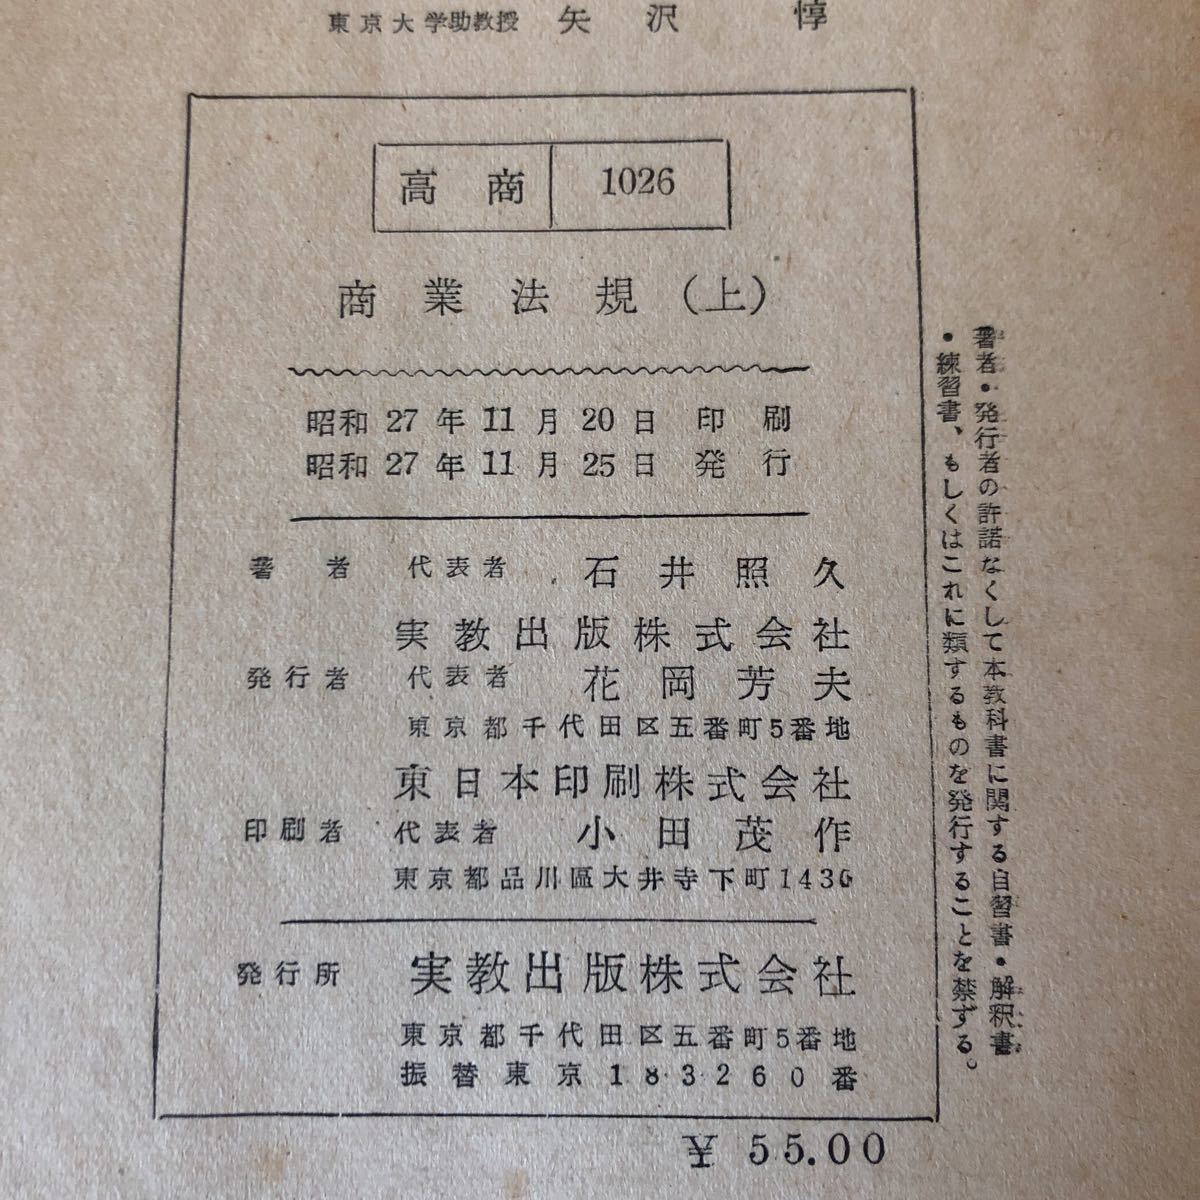 東京大学助教授 矢沢 惇
高商 1026
商業法規(上)
昭和27年11月20日 印刷
昭和27年11月25日 発行
著者 代表者 石井照久
実教出版株式会社
発行者 代表者 花岡芳夫
東京都千代田区五番町5番地
東日本印刷株式会社
印刷者 代表者 小田茂作
東京都品川區大井寺下町1430
発行所 実教出版株式会社
東京都千代田区五番町5番地
振替東京183260番
¥ 55.00
著者・発行者の許諾なくして本教科書に関する自習書・解釈書
・練習書、もしくはこれに類するものを発行することを禁ずる。